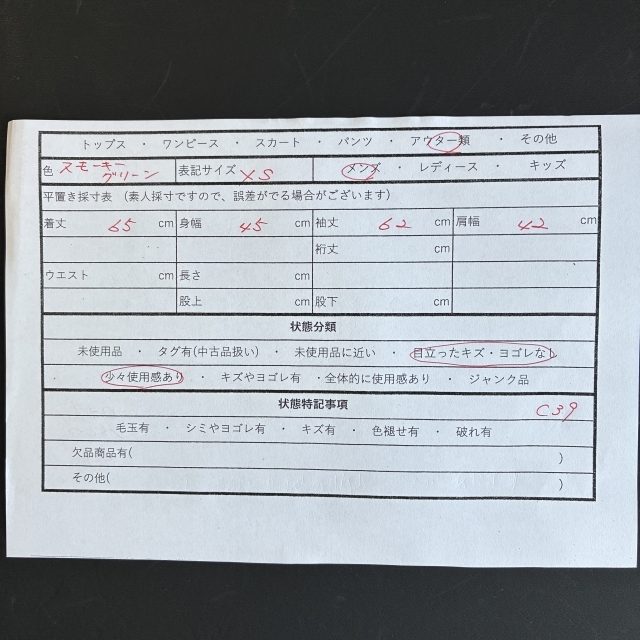 トップス ・ ワンピース ・ スカート ・ パンツ ・ アウター類 ・ その他
色 スモーキーグリーン 表記サイズ XS メンズ ・ レディース ・ キッズ
平置き採寸表 (素人採寸ですので、誤差がでる場合がございます)
着丈 65 cm 身幅 45 cm 袖丈 62 cm 肩幅 42 cm
裄丈 cm
ウエスト cm 長さ cm
股上 cm 股下 cm
状態分類
未使用品 ・ タグ有(中古品扱い) ・ 未使用品に近い ・ 目立ったキズ・ヨゴレなし
少々使用感あり ・ キズやヨゴレ有 ・全体的に使用感あり ・ ジャンク品
状態特記事項 C39
毛玉有 ・ シミやヨゴレ有 ・ キズ有 ・ 色褪せ有 ・ 破れ有
欠品商品有( )
その他( )